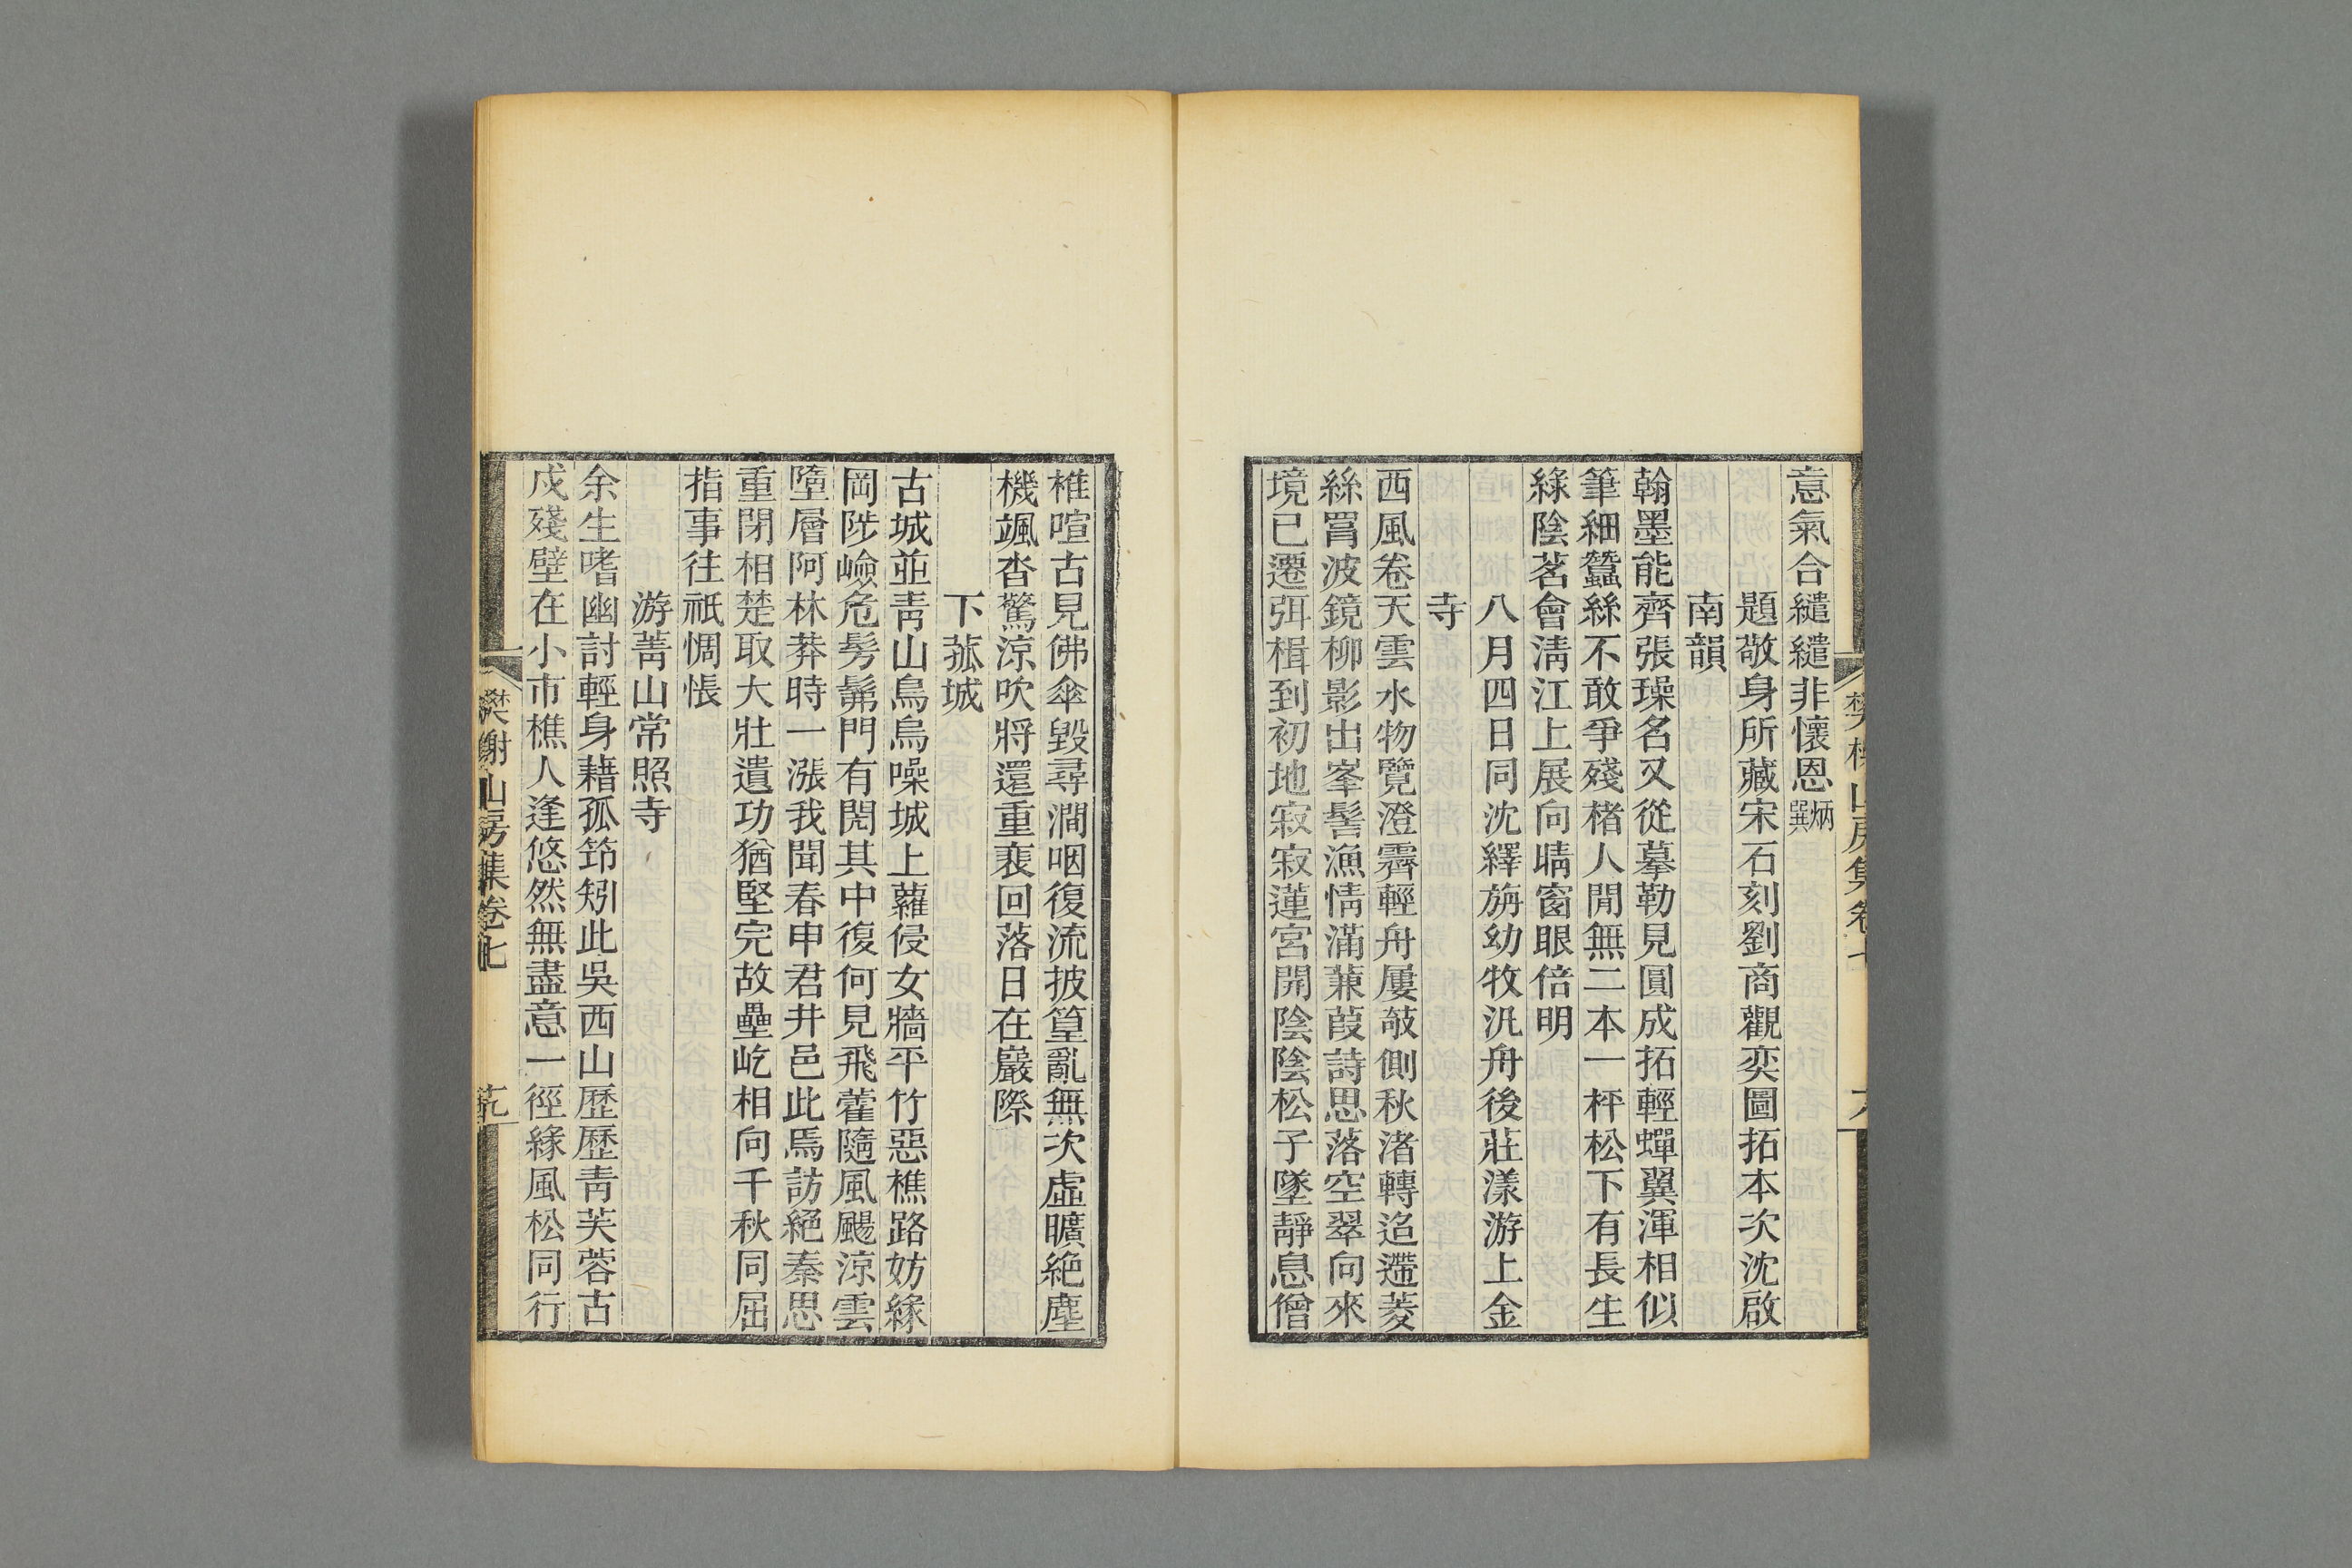 樊榭山房集卷七
意氣合繾繾非懷恩炳巽
題敬身所藏宋石刻劉商觀奕圖拓本次沈啟
南韻
翰墨能齊張璪名又從摹勒見圓成拓輕蟬翼渾相似
筆細蠶絲不敢爭殘楮人閒無二本一枰松下有長生
綠陰茗會淸江上展向晴窗眼倍明
八月四日同沈繹旃幼牧汎舟後莊漾游上金
寺
西風卷天雲水物覽澄霽輕舟屢攲側秋渚轉迢遰菱
絲罥波鏡柳影出峯髻漁情滿蒹葭詩思落空翠向來
境已遷弭楫到初地寂寂蓮宮開陰陰松子墜靜息僧
椎喧古見佛傘毀尋澗咽復流披篁亂無次虛曠絶塵
機颯沓驚涼吹將還重裵回落日在巖際
下菰城
古城並靑山烏烏噪城上蘿侵女牆平竹惡樵路妨緣
岡陟嶮危髣髴門有閌其中復何見飛藿隨風颺涼雲
墮層阿林莽時一漲我聞春申君井邑此焉訪絕秦思
重閉相楚取大壯遺功猶堅完故壘屹相向千秋同屈
指事往祇惆悵
游菁山常照寺
余生嗜幽討輕身藉孤笻矧此吳西山歷歷靑芙蓉古
戍殘壁在小市樵人逢悠然無盡意一徑緣風松同行
樊榭山房集卷七